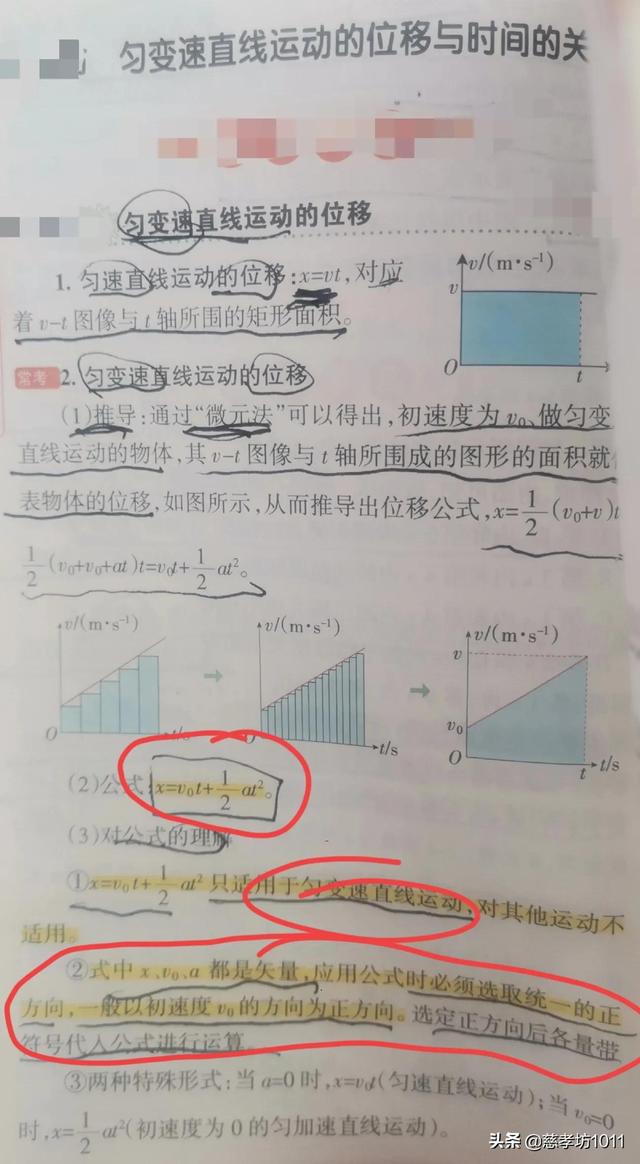 匀变速直线运动的位移与时间的关
匀变速直线运动的位移
1. 匀速直线运动的位移:x=vt,对应
着 v-t 图像与 t 轴所围的矩形面积。
v/(m·s⁻¹)
v
O
t
常考 2. 匀变速直线运动的位移
(1)推导:通过“微元法”可以得出,初速度为 v₀、做匀变
直线运动的物体,其 v-t 图像与 t 轴所围成的图形的面积就
表物体的位移,如图所示,从而推导出位移公式,x=1/2(v₀+v)t
1/2(v₀+v₀+at)t=v₀t+1/2at²。
v/(m·s⁻¹)
O
t/s
v/(m·s⁻¹)
O
t/s
v/(m·s⁻¹)
v
v₀
O
t
t/s
(2)公式:x=v₀t+1/2at²。
(3)对公式的理解
①x=v₀t+1/2at² 只适用于匀变速直线运动,对其他运动不
适用。
②式中 x、v₀、a 都是矢量,应用公式时必须选取统一的正
方向,一般以初速度 v₀ 的方向为正方向。选定正方向后各量带
符号代入公式进行运算。
③两种特殊形式:当 a=0 时,x=v₀t(匀速直线运动);当 v₀=0
时,x=1/2at²(初速度为 0 的匀加速直线运动)。
头条 @慈孝坊1011